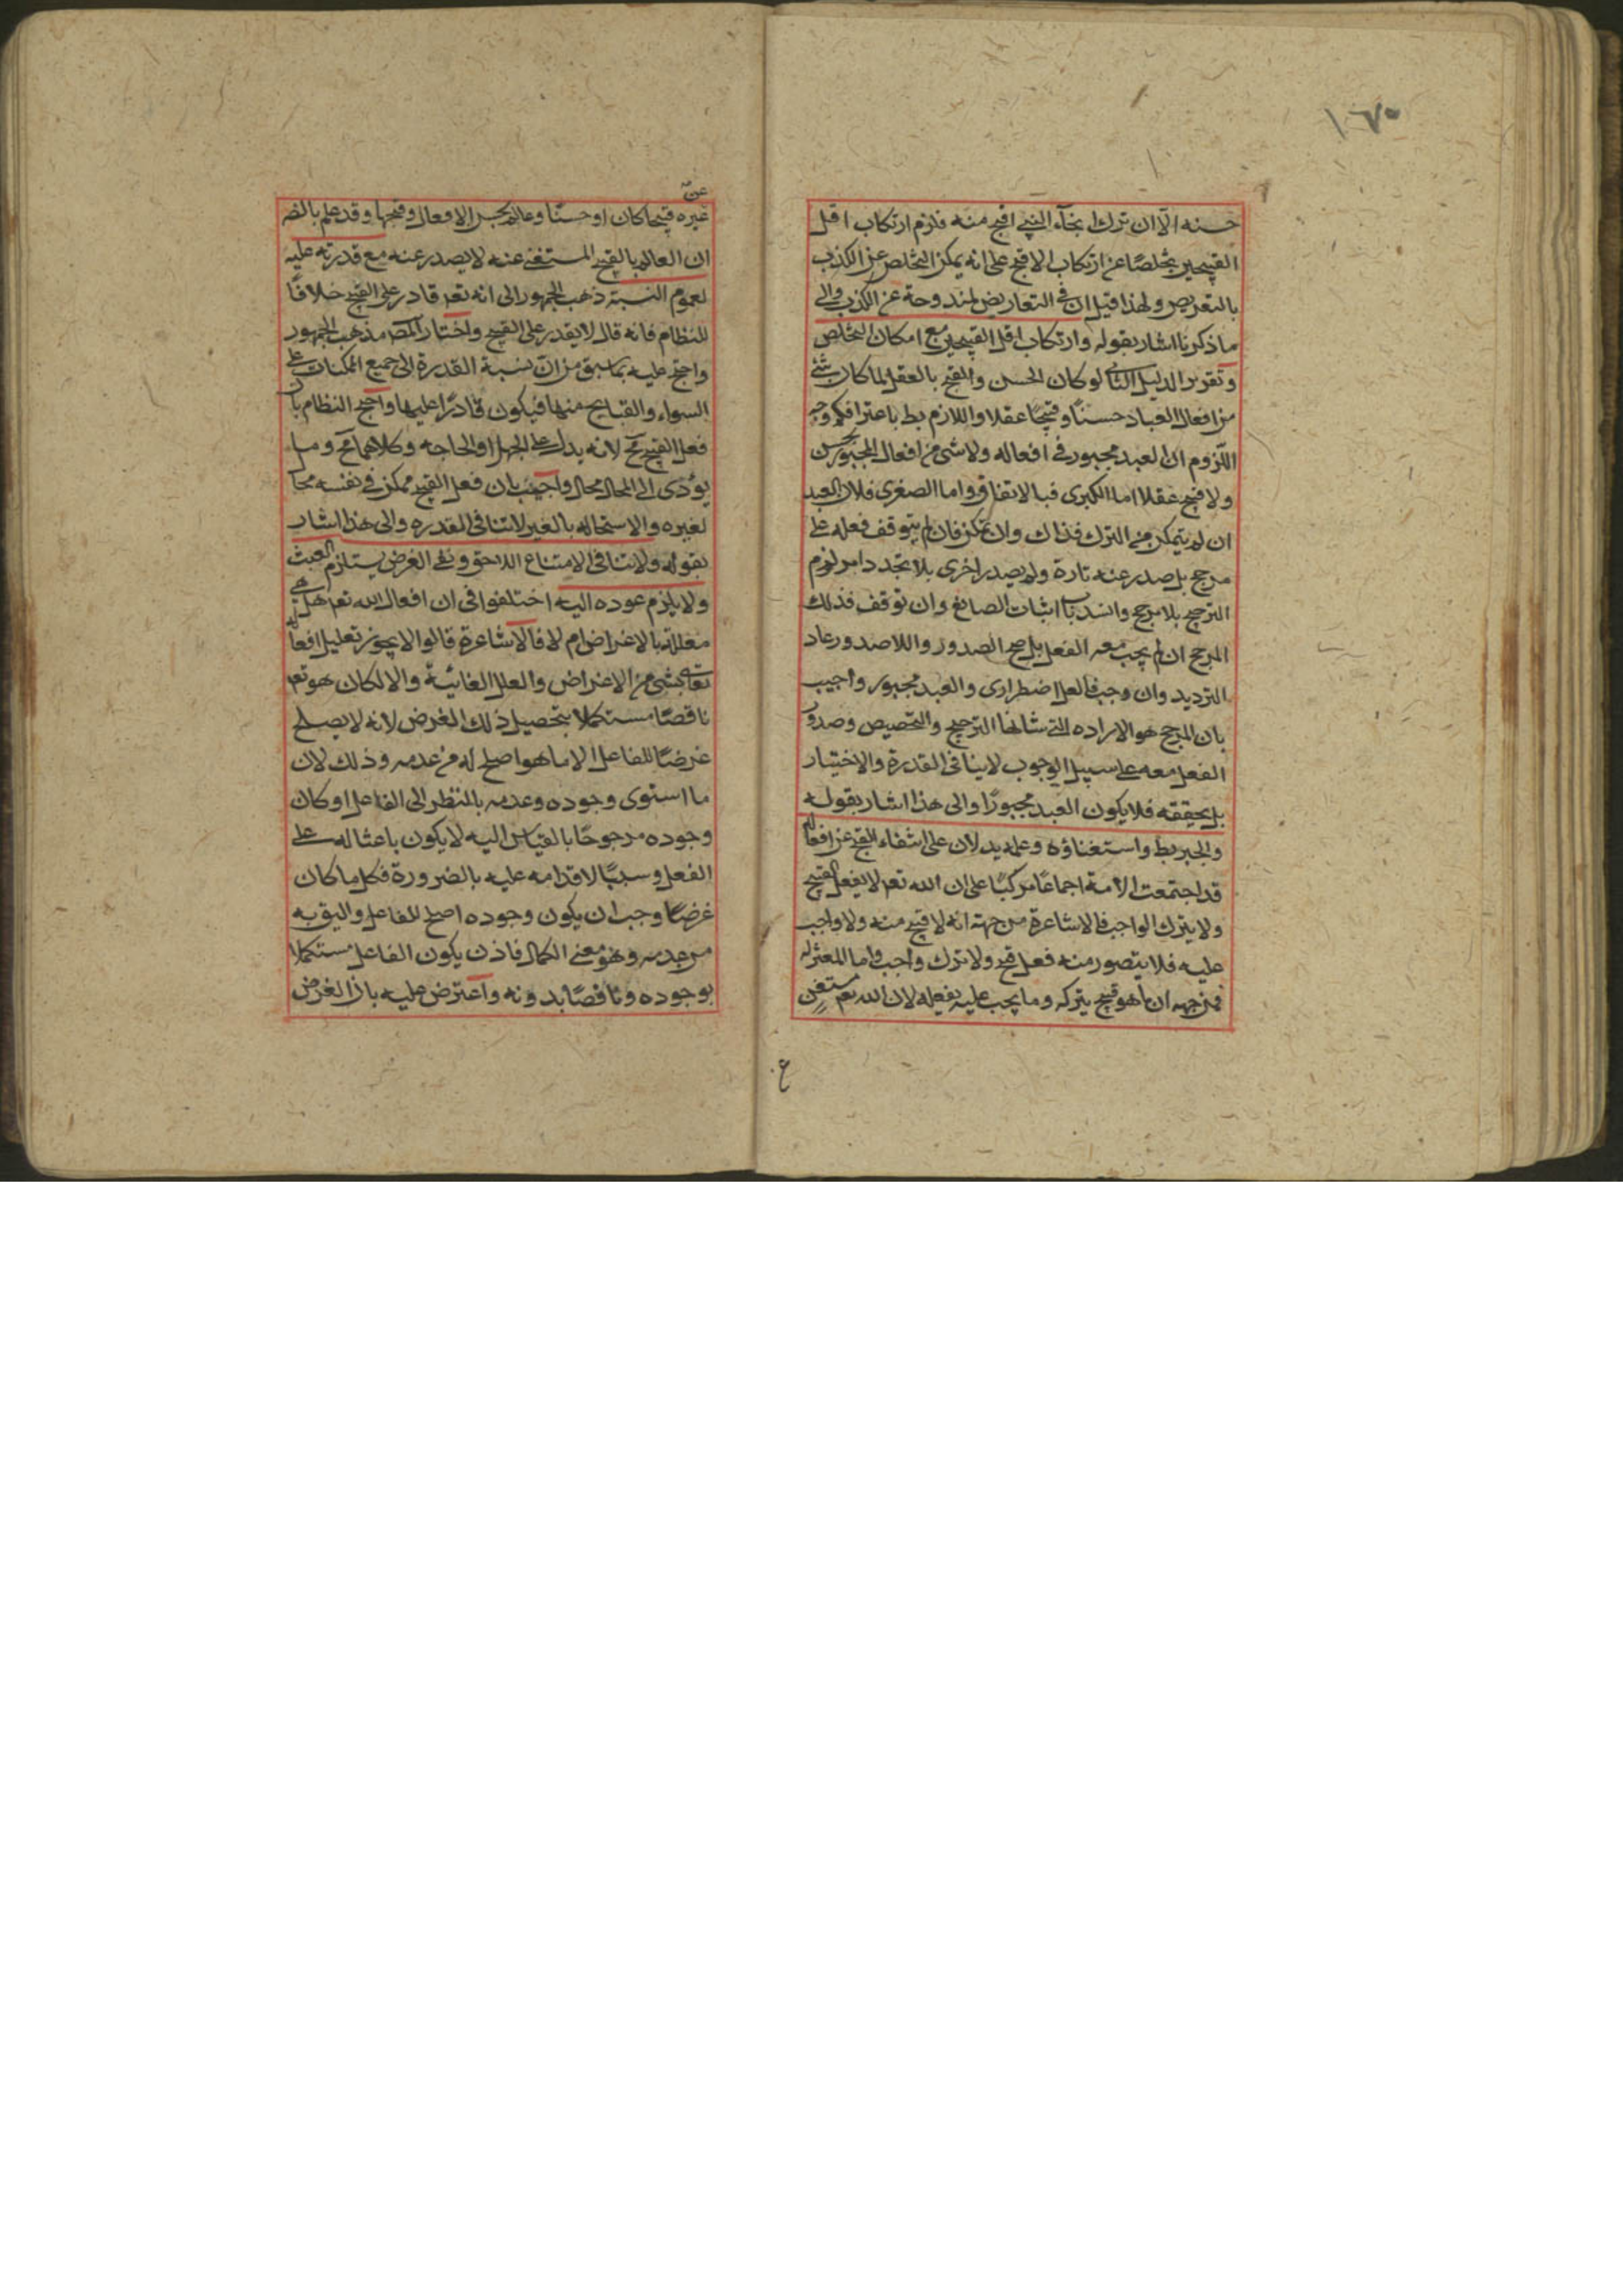 ١٦٧٠
حسنه الا ان ترك انجاء النبي اقبح منه فلزم ارتكاب اقل
القبيحين تخلصًا عن ارتكاب الاقبح على انه يمكن التخلص عن الكذب
بالتعريض ولهذا قيل ان في التعاريض لمندوحة عن الكذب والى
ما ذكرنا اشار بقوله وارتكاب اقل القبيحين مع امكان التخلص
وتقرير الدليل الثاني لو كان الحسن والقبح بالعقل لما كان شئ
من افعال العباد حسنًا وقبيحًا عقلا واللازم بط باعترافكم وجه
اللزوم ان العبد مجبور في افعاله ولا شئ من افعال المجبور بحسن
ولا قبح عقلا اما الكبرى فبالاتفاق واما الصغرى فلان العبد
ان لم يتمكن من الترك فذاك وان تمكن فان لم يتوقف فعله على
مرجح بل صدر عنه تارة ولم يصدر اخرى بلا تجدد امر لزم
الترجح بلا مرجح وانسد باب اثبات الصانع وان توقف فذلك
المرجح ان لم يجب معه الفعل بل صح الصدور واللاصدور عاد
الترديد وان وجب فالفعل اضطرارى والعبد مجبور واجيب
بان المرجح هو الاراده التي شانها الترجيح والتخصيص وصدور
الفعل معه على سبيل الوجوب لاينافى القدرة والاختيار
بل يحققه فلا يكون العبد مجبورًا والى هذا اشار بقوله
والجبر بط واستغناؤه وعلمه يدلان على انتفاء القبح عن افعاله
قد اجتمعت الامة اجماعًا مركبًا على ان الله تعم لا يفعل القبيح
ولا يترك الواجب فالاشاعرة من جهة انه لا قبيح منه ولا واجب
عليه فلا يتصور منه فعل قبح ولا ترك واجب واما المعتزله
فمن جهه ان ما هو قبيح يتركه وما يجب عليه يفعله لان الله تعم مستغن
ع
عن
غيره قبيحا كان او حسنًا وعالم بحسن الافعال وقبحها وقد علم بالضه
ان العالم بالقبيح المستغنى عنه لا يصدر عنه مع قدرته عليه
لعموم النسبة ذهب الجمهور الى انه تعم قادر على القبيح خلافًا
للنظام فانه قال لا يقدر على القبيح واختار المصم مذهب الجمهور
واحتج عليه بما سبق من ان نسبة القدرة الى جميع الممكنات على
السواء والقبايح منها فيكون قادرًا عليها واحتج النظام بان
فعل القبيح مح لانه يدل على الجهل او الحاجه وكلاهما مح وما
يؤدى الى المحال محال واجيب بان فعل القبيح ممكن في نفسه محال
لغيره والاستحاله بالغير لاتنافى القدره والى هذا اشار
بقوله ولا تنافى الامتناع اللاحق ونفى الغرض يستلزم العبث
ولا يلزم عوده اليه اختلفوا فى ان افعال الله تعم هل هى
معللة بالاغراض ام لا فالاشاعرة قالوا لا يجوز تعليل افعاله
تعالى بشئ من الاغراض والعلل الغائية والا لكان هو تعم
ناقصًا مستكملا بتحصيل ذلك الغرض لانه لا يصلح
غرضًا للفاعل الا ما هو اصلح له من عدمه وذلك لان
ما استوى وجوده وعدمه بالنظر الى الفاعل او كان
وجوده مرجوحًا بالقياس اليه لا يكون باعثا له على
الفعل وسببًا لاقدامه عليه بالضرورة فكل ما كان
غرضًا وجب ان يكون وجوده اصلح للفاعل واليق به
من عدمه وهو معنى الكمال فاذن يكون الفاعل مستكملا
بوجوده وناقصًا بدونه واعترض عليه بان الغرض